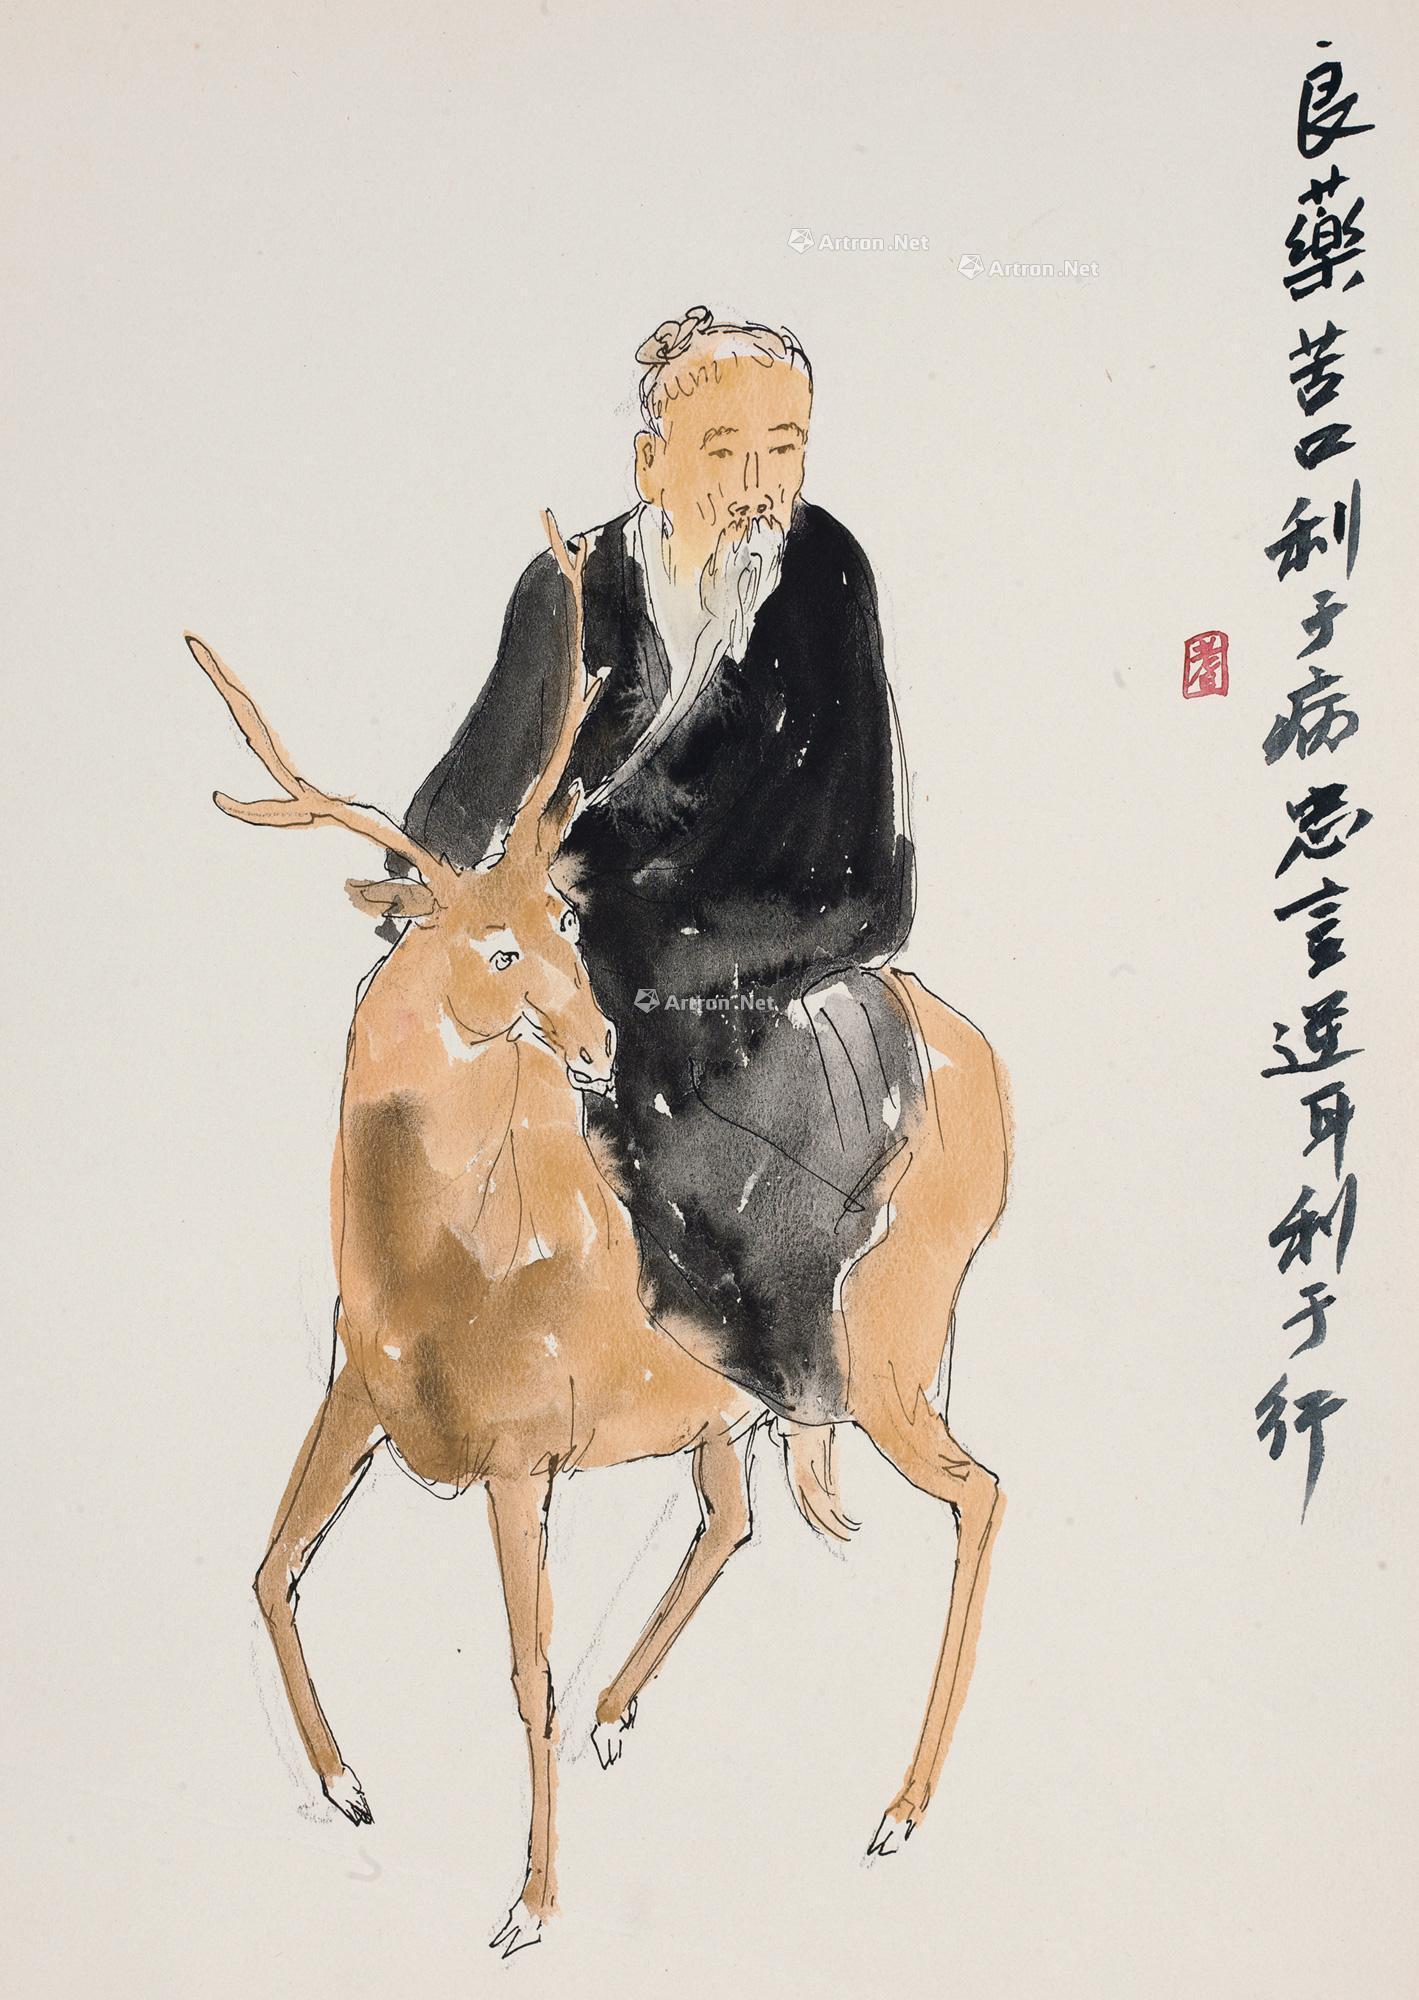 良藥苦口利于病忠言逆耳利于行
Artron.Net
Artron.Net
Artron.Net